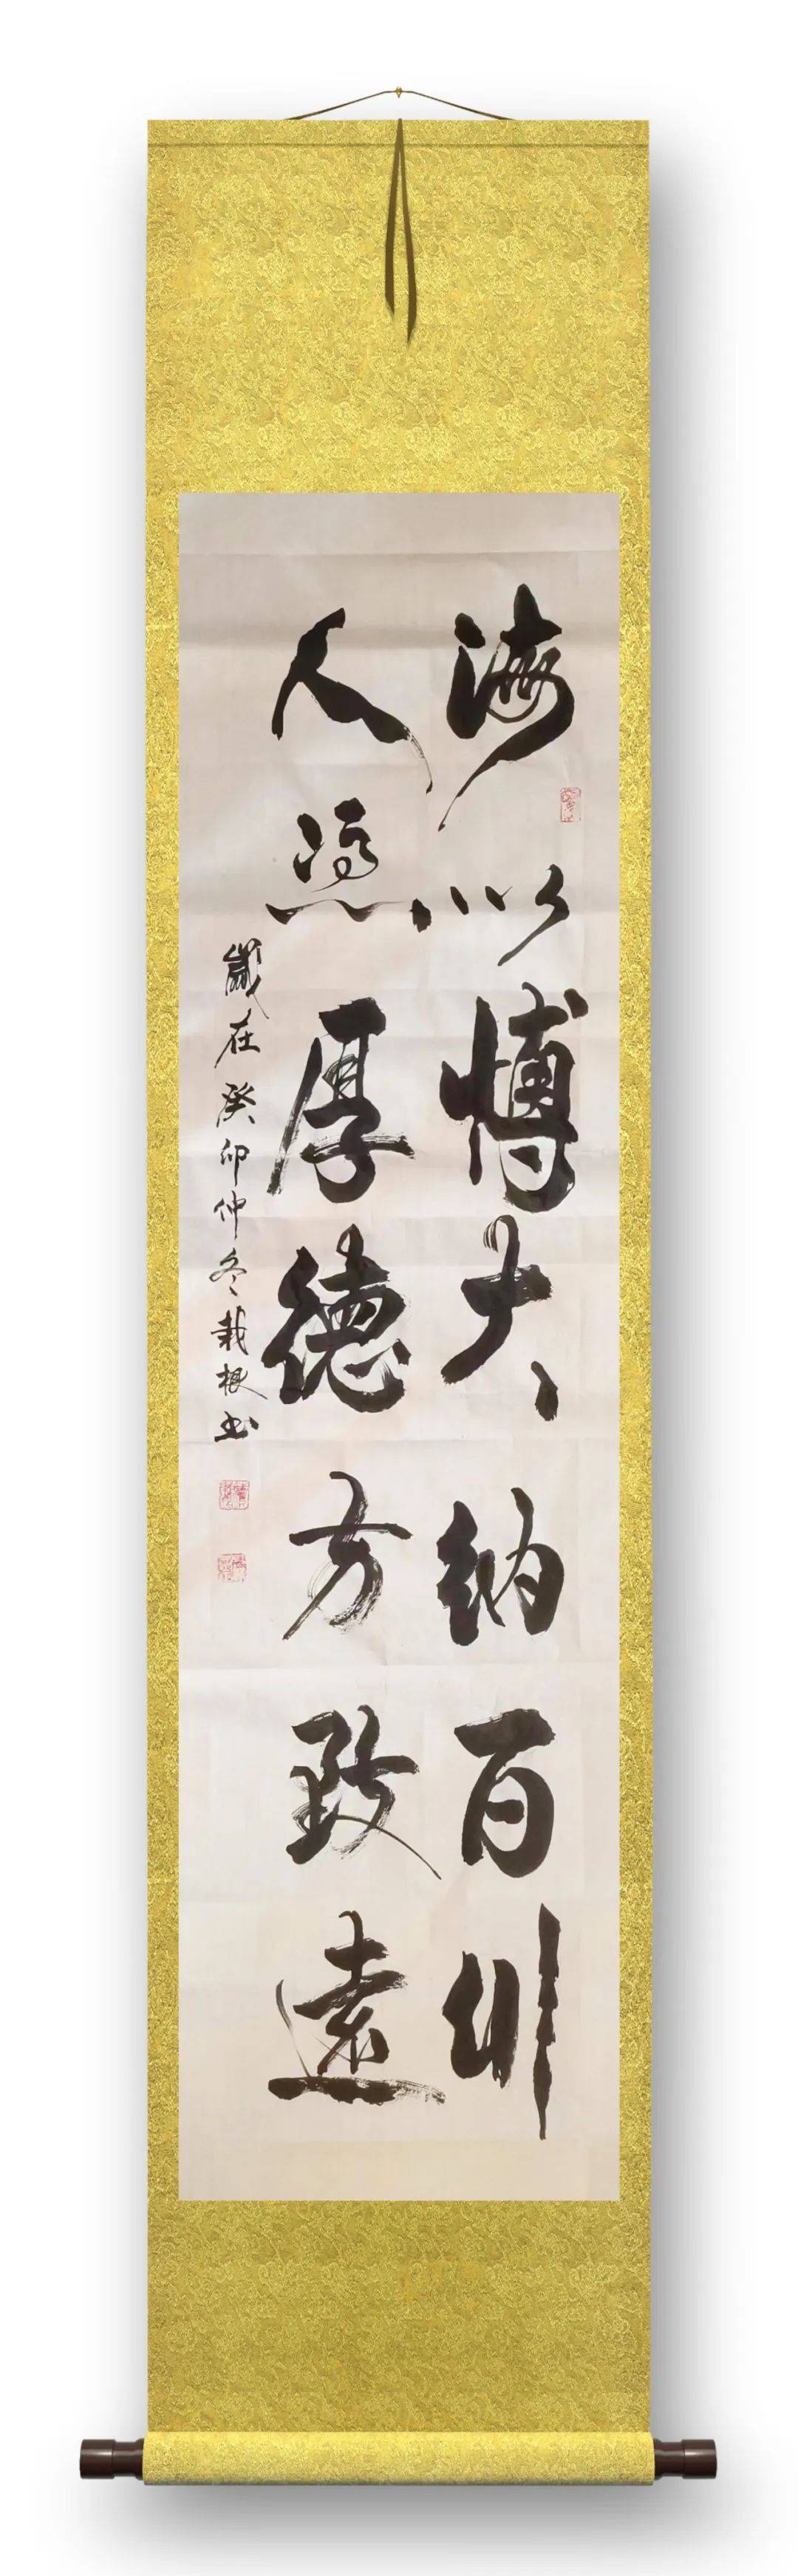 海以博大纳百川
人凭厚德方致远
歲在癸卯仲冬栽根书